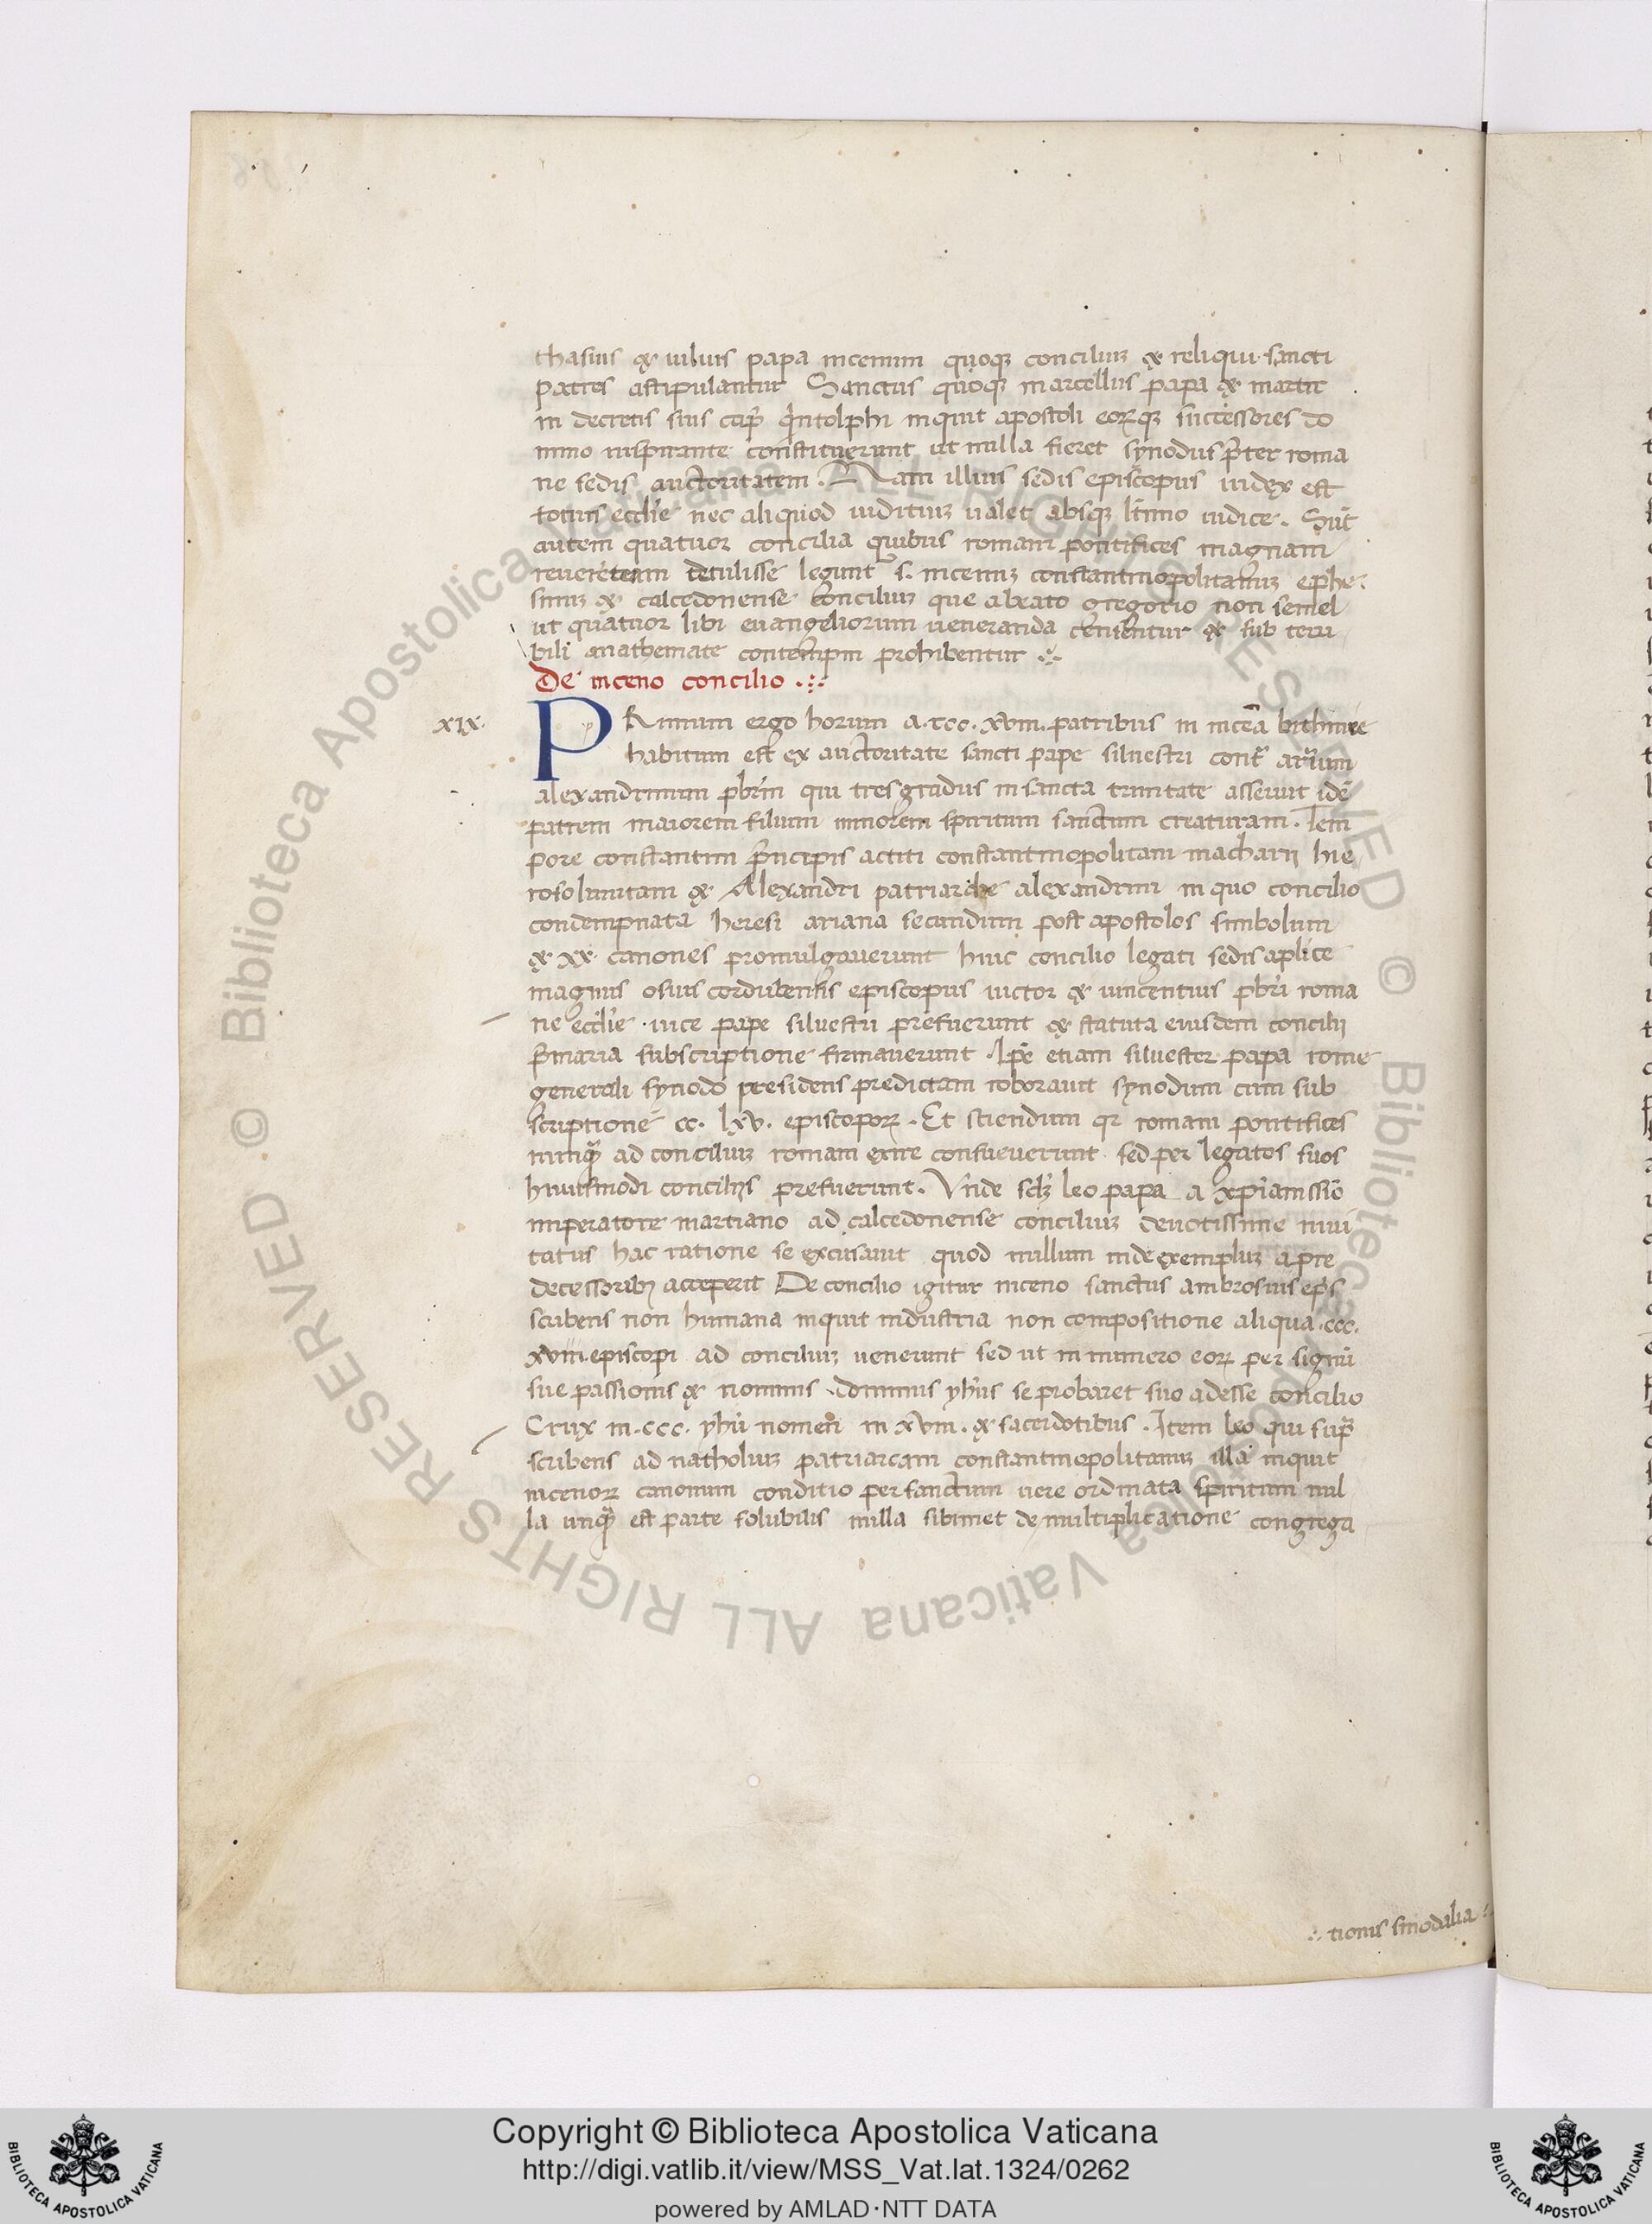 thasius & iulius papa nicenum quoq; concilium & reliqui sancti
patres astipulantur Sanctus quoq; marcellus papa & martir
in decretis suis inquit apostoli eorumq; successores do
mino inspirante constituerunt ut nulla fieret synodus p̄ter roma
ne sedis auctoritatem. Nam illius sedis episcopus iudex est
totius eccl'ie nec aliquod iuditium ualet absq; l'timo iudice. Sūt
autem quatuor concilia quibus romani pontifices magnam
detulisse legunt~ s. nicenum constantinopolitanum ephe
sinum & calcedonense concilium que a beato gregorio non semel
ut quatuor libri euangeliorum ueneranda censentur & sub terri
bili anathemate contempni prohibentur
De niceno concilio
xix. PRimum ergo horum a. ccc. xviii. patribus in nicēa bithinie
habitum est ex auctoritate sancti pape siluestri cont̄ arrium
alexandrinum pb̄r̄m qui tres gradus in sancta trinitate asseruit idē
patrem maiorem filium minorem spiritum sanctum creaturam. Tem
pore constantini p̄ncipis constantinopolitani macharii hie
rosolimitani & Alexandri patriarche alexandrini in quo concilio
condempnata heresi ariana secundum post apostolos simbolum
& xx canones promulgauerunt huic concilio legati sedis ap'lice
magnus osius cordubensis episcopus uictor & uincentius pb̄r̄i roma
ne eccl'ie uice pape siluestri prefuerunt & statuta eiusdem concilii
p̄maria subscriptione firmauerunt. Ip̄e etiam siluester papa rome
generali synodo presidens predictam roborauit synodum cum sub
scriptione cc. lxv. episcoporum. Et sciendum romani pontifices
nunq̄ ad concilium romam exire consueuerunt sed per legatos suos
huiusmodi conciliis prefuerunt. Vnde leo papa a xp̄ianissīo
imperatore martiano ad calcedonense concilium deuotissime inui
tatus hac ratione se excusauit quod nullum inde exemplum a pre
decessoribus acceperit De concilio igitur niceno sanctus ambrosius ep̄s
scribens non humana inquit industria non compositione aliqua. ccc.
xviii. episcopi ad concilium uenerunt sed ut in numero eorum per signū
sue passionis & nominis dominus yh̄us se probaret suo adesse concilio
Crux in. ccc. yh̄u nomen in xviii. & sacerdotibus. Item leo qui sup̄
scribens ad natholium patriarcam constantinopolitanum illa inquit
nicenorum canonum conditio per sanctum uere ordinata spiritum nul
la unq̄ est parte solubilis nulla sibimet de multiplicatione congrega
tionis sinodalia
© Biblioteca Apostolica Vaticana ALL RIGHTS RESERVED © Biblioteca Apostolica Vaticana ALL RIGHTS RESERVED
Copyright © Biblioteca Apostolica Vaticana
http://digi.vatlib.it/view/MSS_Vat.lat.1324/0262
powered by AMLAD·NTT DATA
BIBLIOTECA APOSTOLICA VATICANA
BIBLIOTECA APOSTOLICA VATICANA